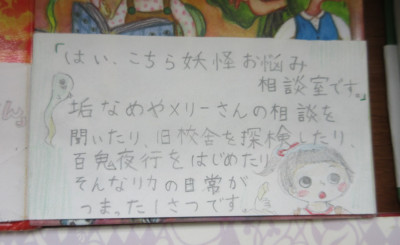 「はい、こちら妖怪お悩み
相談室です。」
垢なめやメリーさんの相談を
聞いたり、旧校舎を探検したり、
百鬼夜行をはじめたり
そんなリカの日常が
つまった1さつです。